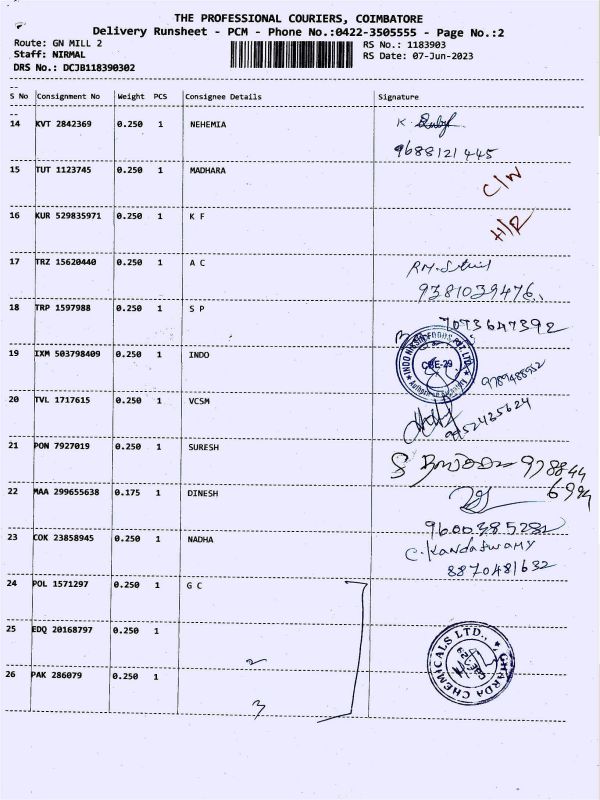 THE PROFESSIONAL COURIERS, COIMBATORE
Delivery Runsheet - PCM - Phone No.:0422-3505555 - Page No.:2
Route: GN MILL 2
RS No.: 1183903
Staff: NIRMAL
RS Date: 07-Jun-2023
DRS No.: DCJB118390302
S No Consignment No Weight PCS Consignee Details Signature
14 KVT 2842369 0.250 1 NEHEMIA K.
9688121445
15 TUT 1123745 0.250 1 MADHARA C/W
16 KUR 529835971 0.250 1 K F H/R
17 TRZ 15620440 0.250 1 A C RM.
9381039476
18 TRP 1597988 0.250 1 S P 7093647392
19 IXM 503798409 0.250 1 INDO CBE-29
20 TVL 1717615 0.250 1 VCSM
21 PON 7927019 0.250 1 SURESH
22 MAA 299655638 0.175 1 DINESH
9600385282
23 COK 23858945 0.250 1 NADHA C. Kandaswamy
8870481632
24 POL 1571297 0.250 1 G C
25 EDQ 20168797 0.250 1
2
26 PAK 286079 0.250 1
3
GHARDA CHEMICALS LTD.,